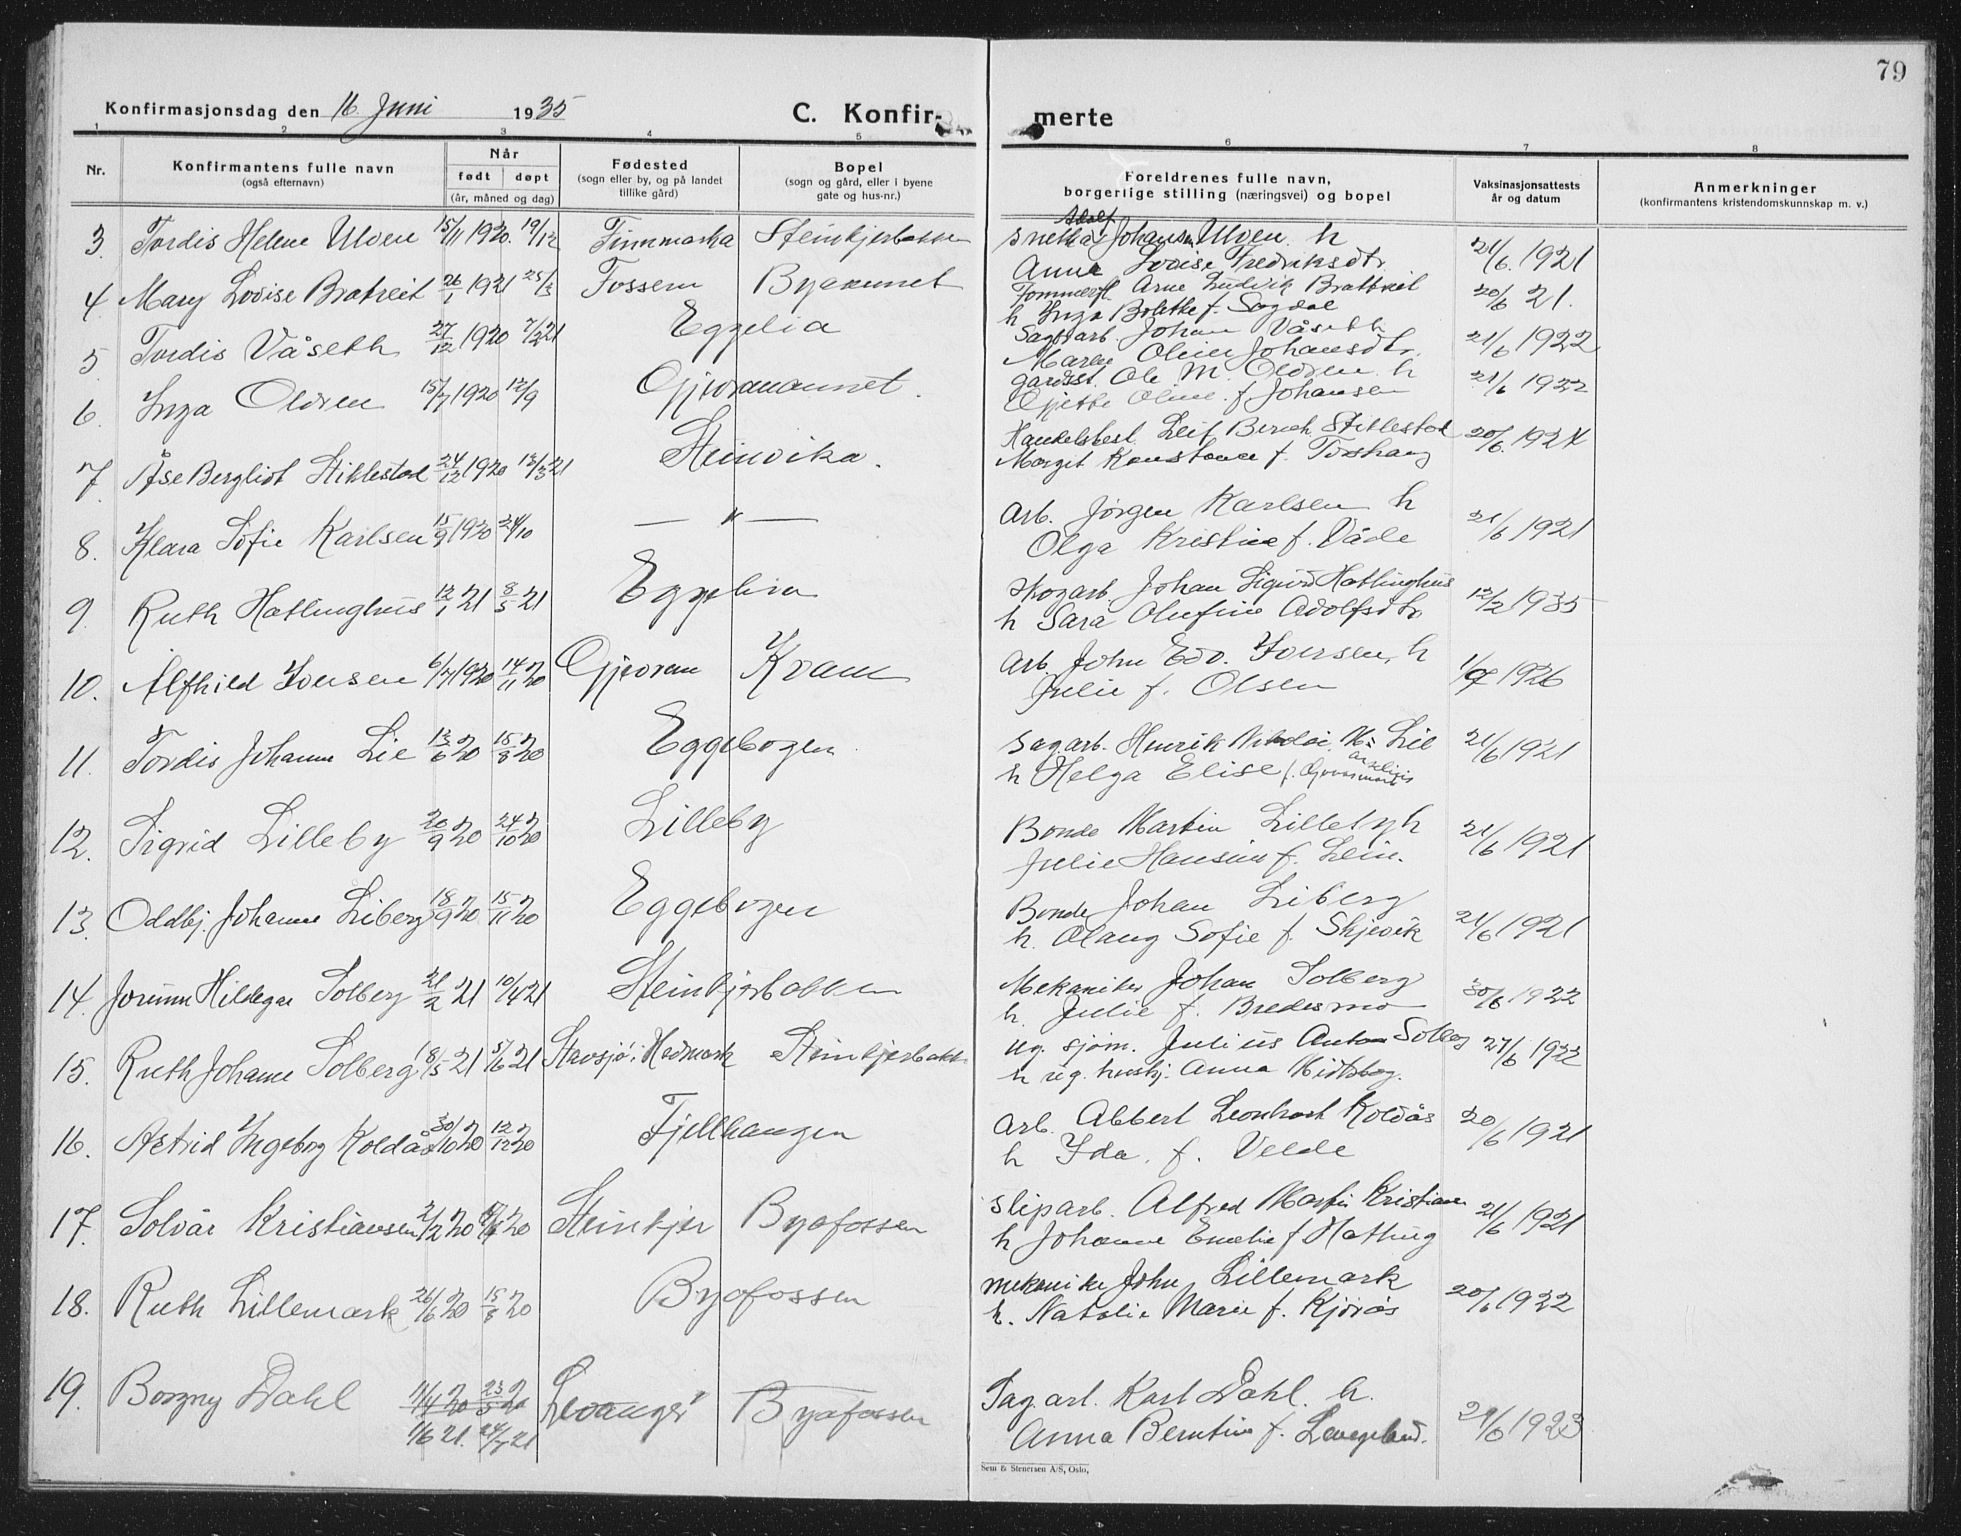 79
Konfirmasjonsdag den 16. Juni 1935
C. Konfir- merte
1 2 3 4 5 6 7 8
Nr.
Konfirmantens fulle navn
(også efternavn)
Når
født døpt
(år, måned og dag)
Fødested
(sogn eller by, og på landet
tillike gård)
Bopel
(sogn og gård, eller i byene
gate og hus-nr.)
Foreldrenes fulle navn,
borgerlige stilling (næringsvei) og bopel
Vaksinasjonsattests
år og datum
Anmerkninger
(konfirmantens kristendomskunnskap m. v.)
3. Tordis Helene Ulven 15/11 1920. 19/12 Finnmarka Steinkjerbakken Adolf Johansen Ulven. h 21/6. 1921
Anna Lovise Fredriksdtr.
4. Mary Lovise Bratreit 26/1 1921 25/3 Fossem Byamunet Arne Ludvik Brattreit 20/6 21.
h Inga Bolette f. Sagdal
5. Tordis Våseth 27/12 1920 7/2 21 Eggelia Sagbarb. Johan Våseth 21/6 1922
Maren Oline Johansdtr.
6. Inga Oldren 15/7 1920 12/9 Gjevranannet. Gardsst. Ole M. Oldren h 21/6 1922
Gjette Oline f Johansen
7. Åse Bergliot Stiklestad 24/12 1920 13/3 21 Steinvika. Handelsbest. Leif Bernh. Stiklestad 20/6. 1924
Margit Konstance f. Torshaug
8. Klara Sofie Karlsen 15/9 1920 24/10 — " — Arb. Jørgen Karlsen h 21/6 1921
Olga Kristine f. Våde
9. Ruth Hatlinghus 12/1 21 8/5 21 Eggelia Skogarb. Johan Sigurd Hatlinghus 12/2 1935
h Sara Olufine Adolfsdtr
10. Alfhild Iversen 6/7 1920 14/11 20 Gjevran Kvam Arb. John Edv. Iversen, h 1/7 1926
Julie f. Olsen
11. Tordis Johanne Lie 13/6 20 15/8 20 Eggebogen Sagarb. Henrik Nikolai Lie 21/6 1921
h Helga Elise f.
12. Sigrid Lilleby 20/9 20 24/10 20 Lilleby Bonde Martin Lilleby h 21/6 1921
Julie Hansine f. Lein.
13. Oddbj. Johanne Liberg 18/9 20 15/11 20 Eggebogen Bonde Johan Liberg 21/6 1921
h. Olaug Sofie f. Skjevik
14. Jorunn Hildegar Solberg 21/2 21 10/4 21 Steinkjerbakken Mekaniker Johan Solberg 30/6 1922
h. Julie f. Bredesmo
15. Ruth Johanne Solberg 18/5 21 5/6 21 Stavsjø i Hedmark Steinkjerbakk. ug. sjøm. Julius Anton Solberg 27/6 1922
h ug. huskj. Anna Midtsbog.
16. Astrid Ingeborg Koldås 30/10 20 12/12 20 Fjellhaugen Arb. Abbert Leonhart Koldås 20/6 1921
h Ida. f. Velde
17. Solvår Kristiansen 2/2 20 20 Steinkjer Byafossen Sliparb. Alfred Martin Kristian 21/6 1921
h Johanne Emelie f Hatling
18. Ruth Lillemark 26/6 20 15/8 20 Byafossen Mekaniker John Lillemark 20/6 1922
h. Natalie Marie f. Kjørås
19. Borgny Dahl 11/4 20 23/5 20 Levanger Byafossen Sag.arb. Karl Dahl. h. 29/6 1923
1/6 21. 24/7 21 Anna Berntine f. Langeland.
Sem & Stenersen A/S, Oslo.